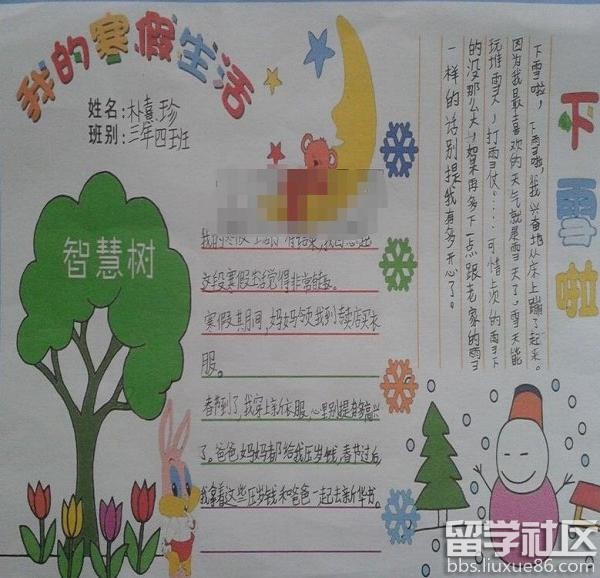 我的寒假生活
姓名:朴熹珍
班别:三年四班
智慧树
这段寒假生活觉得非常
寒假其月间,妈妈今次我到专卖店买衣
服。
春节到了,我穿上新衣服,心里别提有多高兴
了。爸爸,妈妈都给我压岁钱,春节过后,
我拿着这些压岁钱和爸爸一起去新华书。
下雪啦
下雪啦,下雪啦,我兴奋地从床上蹦了起来。
因为我最喜欢的天气就是雪天了,雪天能
玩堆雪人,打雪仗……可惜这的雪下
的没那么大,如果再多下一点跟老家的雪
一样的话别提我有多开心了。
留学社区
bbs.liuxue86.com